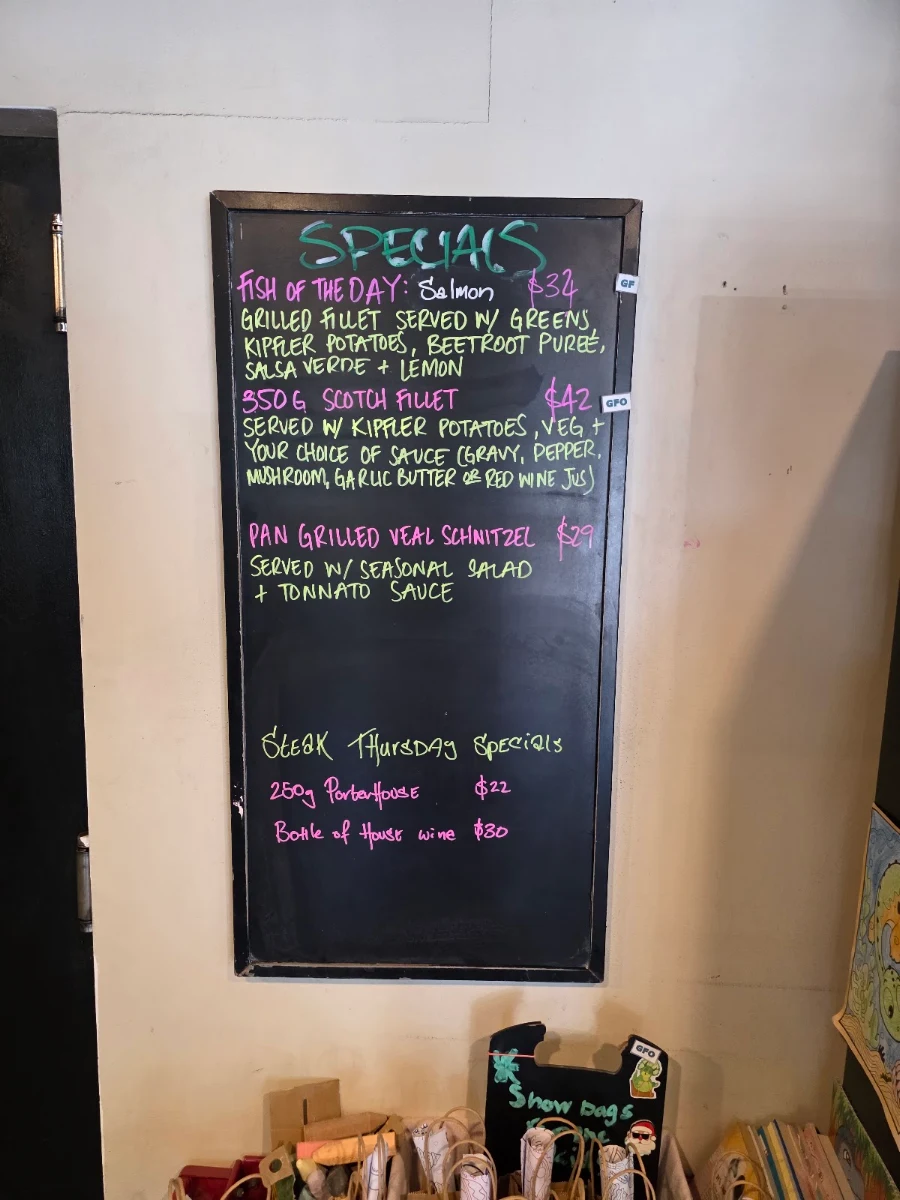 SPECIALS
FISH OF THE DAY: Salmon $34
GF
GRILLED FILLET SERVED W/ GREENS,
KIPFLER POTATOES, BEETROOT PUREÉ,
SALSA VERDE + LEMON
350G SCOTCH FILLET $42
GFO
SERVED W/ KIPFLER POTATOES, VEG +
YOUR CHOICE OF SAUCE (GRAVY, PEPPER,
MUSHROOM, GARLIC BUTTER OR RED WINE JUS)
PAN GRILLED VEAL SCHNITZEL $29
SERVED W/ SEASONAL SALAD
+ TONNATO SAUCE
STEAK THURSDAY SPECIALS
250g PorterHouse $22
Bottle of House wine $30
GFO
Show bags